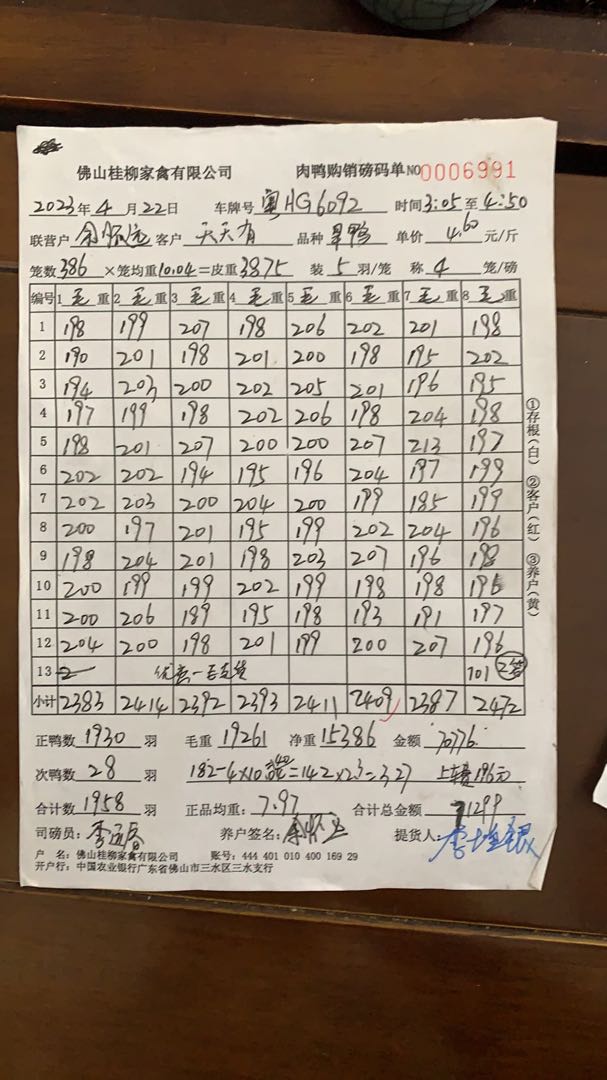 佛山桂柳家禽有限公司 肉鸭购销磅码单 NO 0006991
2023年 4 月 22日 车牌号 粤HG6092 时间 3:05 至 4:50
联营户 客户 天天有 品种 旱鸭 单价 4.60 元/斤
笼数 386 ×笼均重 10.04 =皮重 3875 装 5 羽/笼 称 4 笼/磅
编号 1 毛 重 2 毛 重 3 毛 重 4 毛 重 5 毛 重 6 毛 重 7 毛 重 8 毛 重
1 198 199 207 198 206 202 201 198
2 190 201 198 201 200 198 195 202
3 194 203 200 202 205 201 196 195
4 197 199 198 202 206 198 204 198
5 198 201 207 200 200 207 213 197
6 202 202 194 195 196 204 197 199
7 202 203 200 204 200 199 185 199
8 200 197 201 195 199 202 204 196
9 198 204 201 198 203 207 196 198
10 200 199 199 202 199 198 198 196
11 200 206 189 195 198 193 191 197
12 204 200 198 201 199 200 207 196
13 101
小计 2383 2414 2392 2393 2411 2409 2387 2472
正鸭数 1930 羽 毛重 19261 净重 15386 金额 70776
次鸭数 28 羽 182-4×10 =142×23=327 196元
合计数 1958 羽 正品均重: 7.97 合计总金额 71299
司磅员: 养户签名: 提货人:
户 名: 佛山桂柳家禽有限公司 账号: 444 401 010 400 169 29
开户行: 中国农业银行广东省佛山市三水区三水支行
①存根(白) ②客户(红) ③养户(黄)